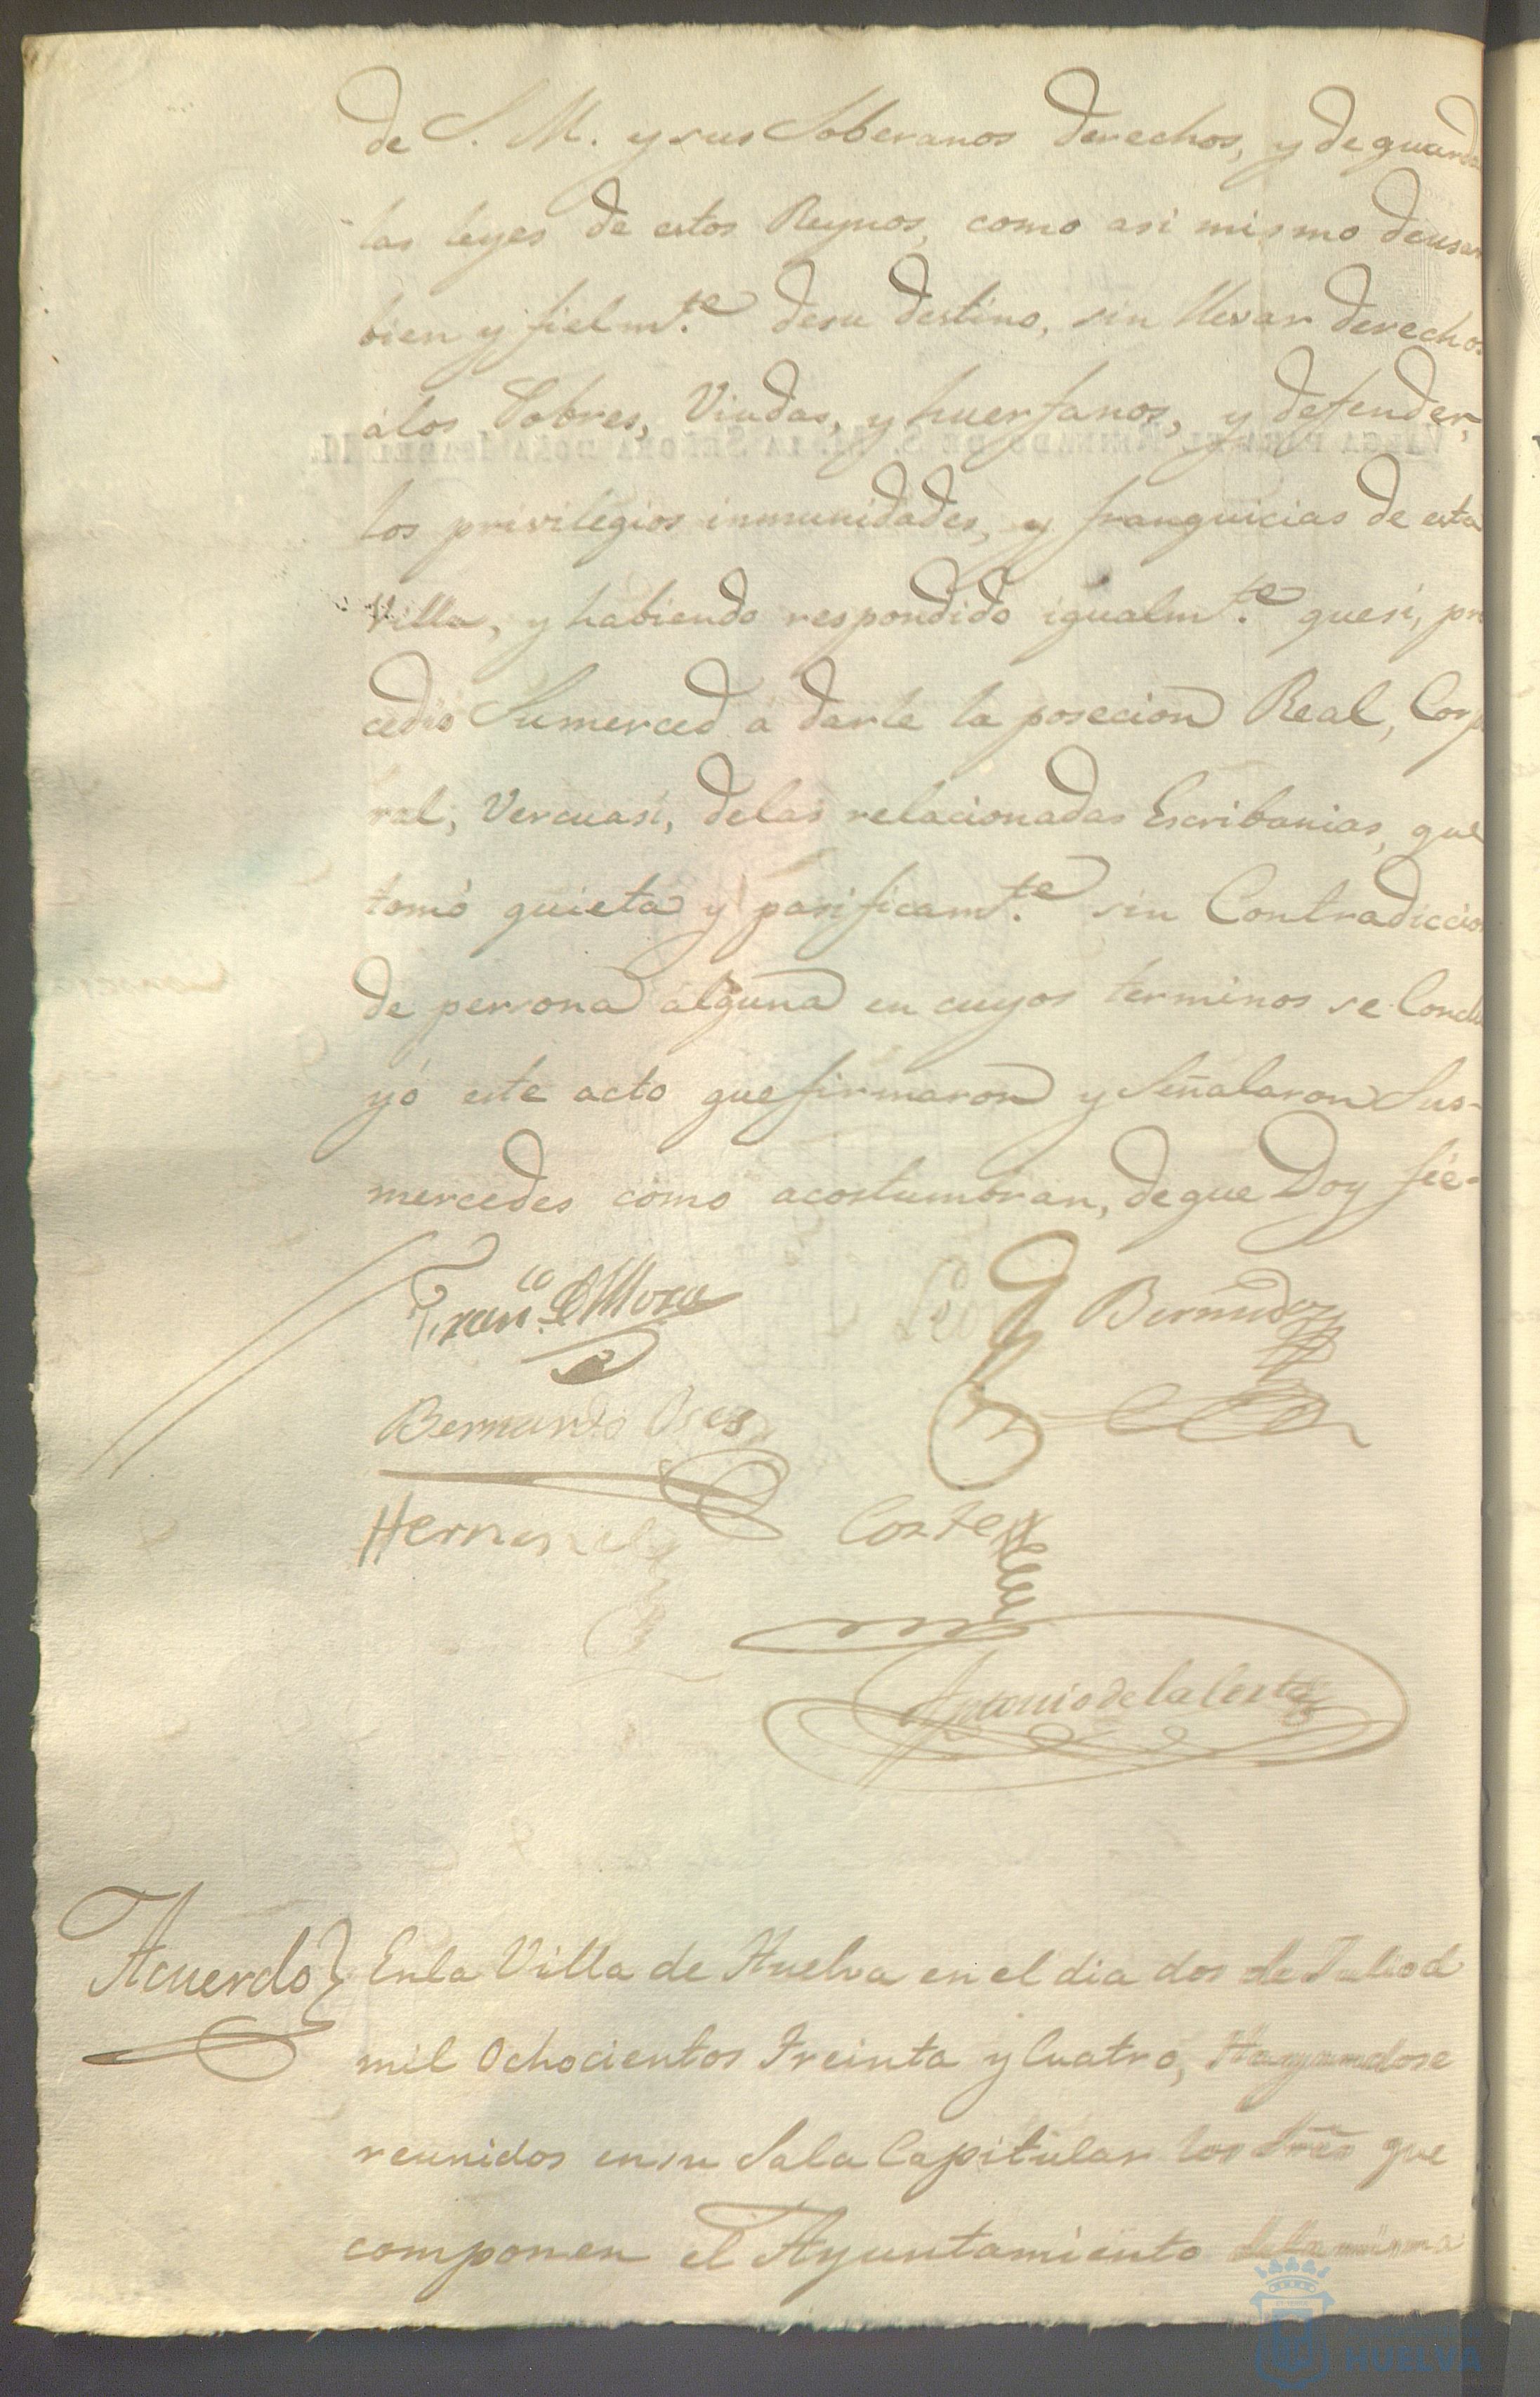 de S. M. y sus Soberanos derechos, y de guarda
las leyes de estos Reynos, como asi mismo de usar
bien y fielm.te desu destino, sin llevar derechos
álos Pobres, Viudas, y huerfanos, y defender,
los privilegios inmunidades, y franquicias de esta
Villa, y habiendo respondido igualm.te quesi, pro
cedio Sumerced á darle la posecion Real, Corpo
ral, Vercuasi, delas relacionadas Escribanias, que
tomó quieta y pasificam.te sin Contradiccion
de persona alguna en cuyos terminos se Conclu
yó este acto que firmaron y Señalaron Sus-
mercedes como acostumbran, deque Doy fée-
Fran.co de Mora
Bermudez
Bernardo Oses
Hernandez
Cortes
Antonio de la Corte
Acuerdo} Enla Villa de Huelva en el dia dos de Julio d
mil Ochocientos treinta y Cuatro, Hayandose
reunidos en su Sala Capitular los Sres que
componen el Ayuntamiento dela misma
VALGA PARA EL REINADO DE S. M. LA SEÑORA DOÑA ISABEL II.
HUELVA